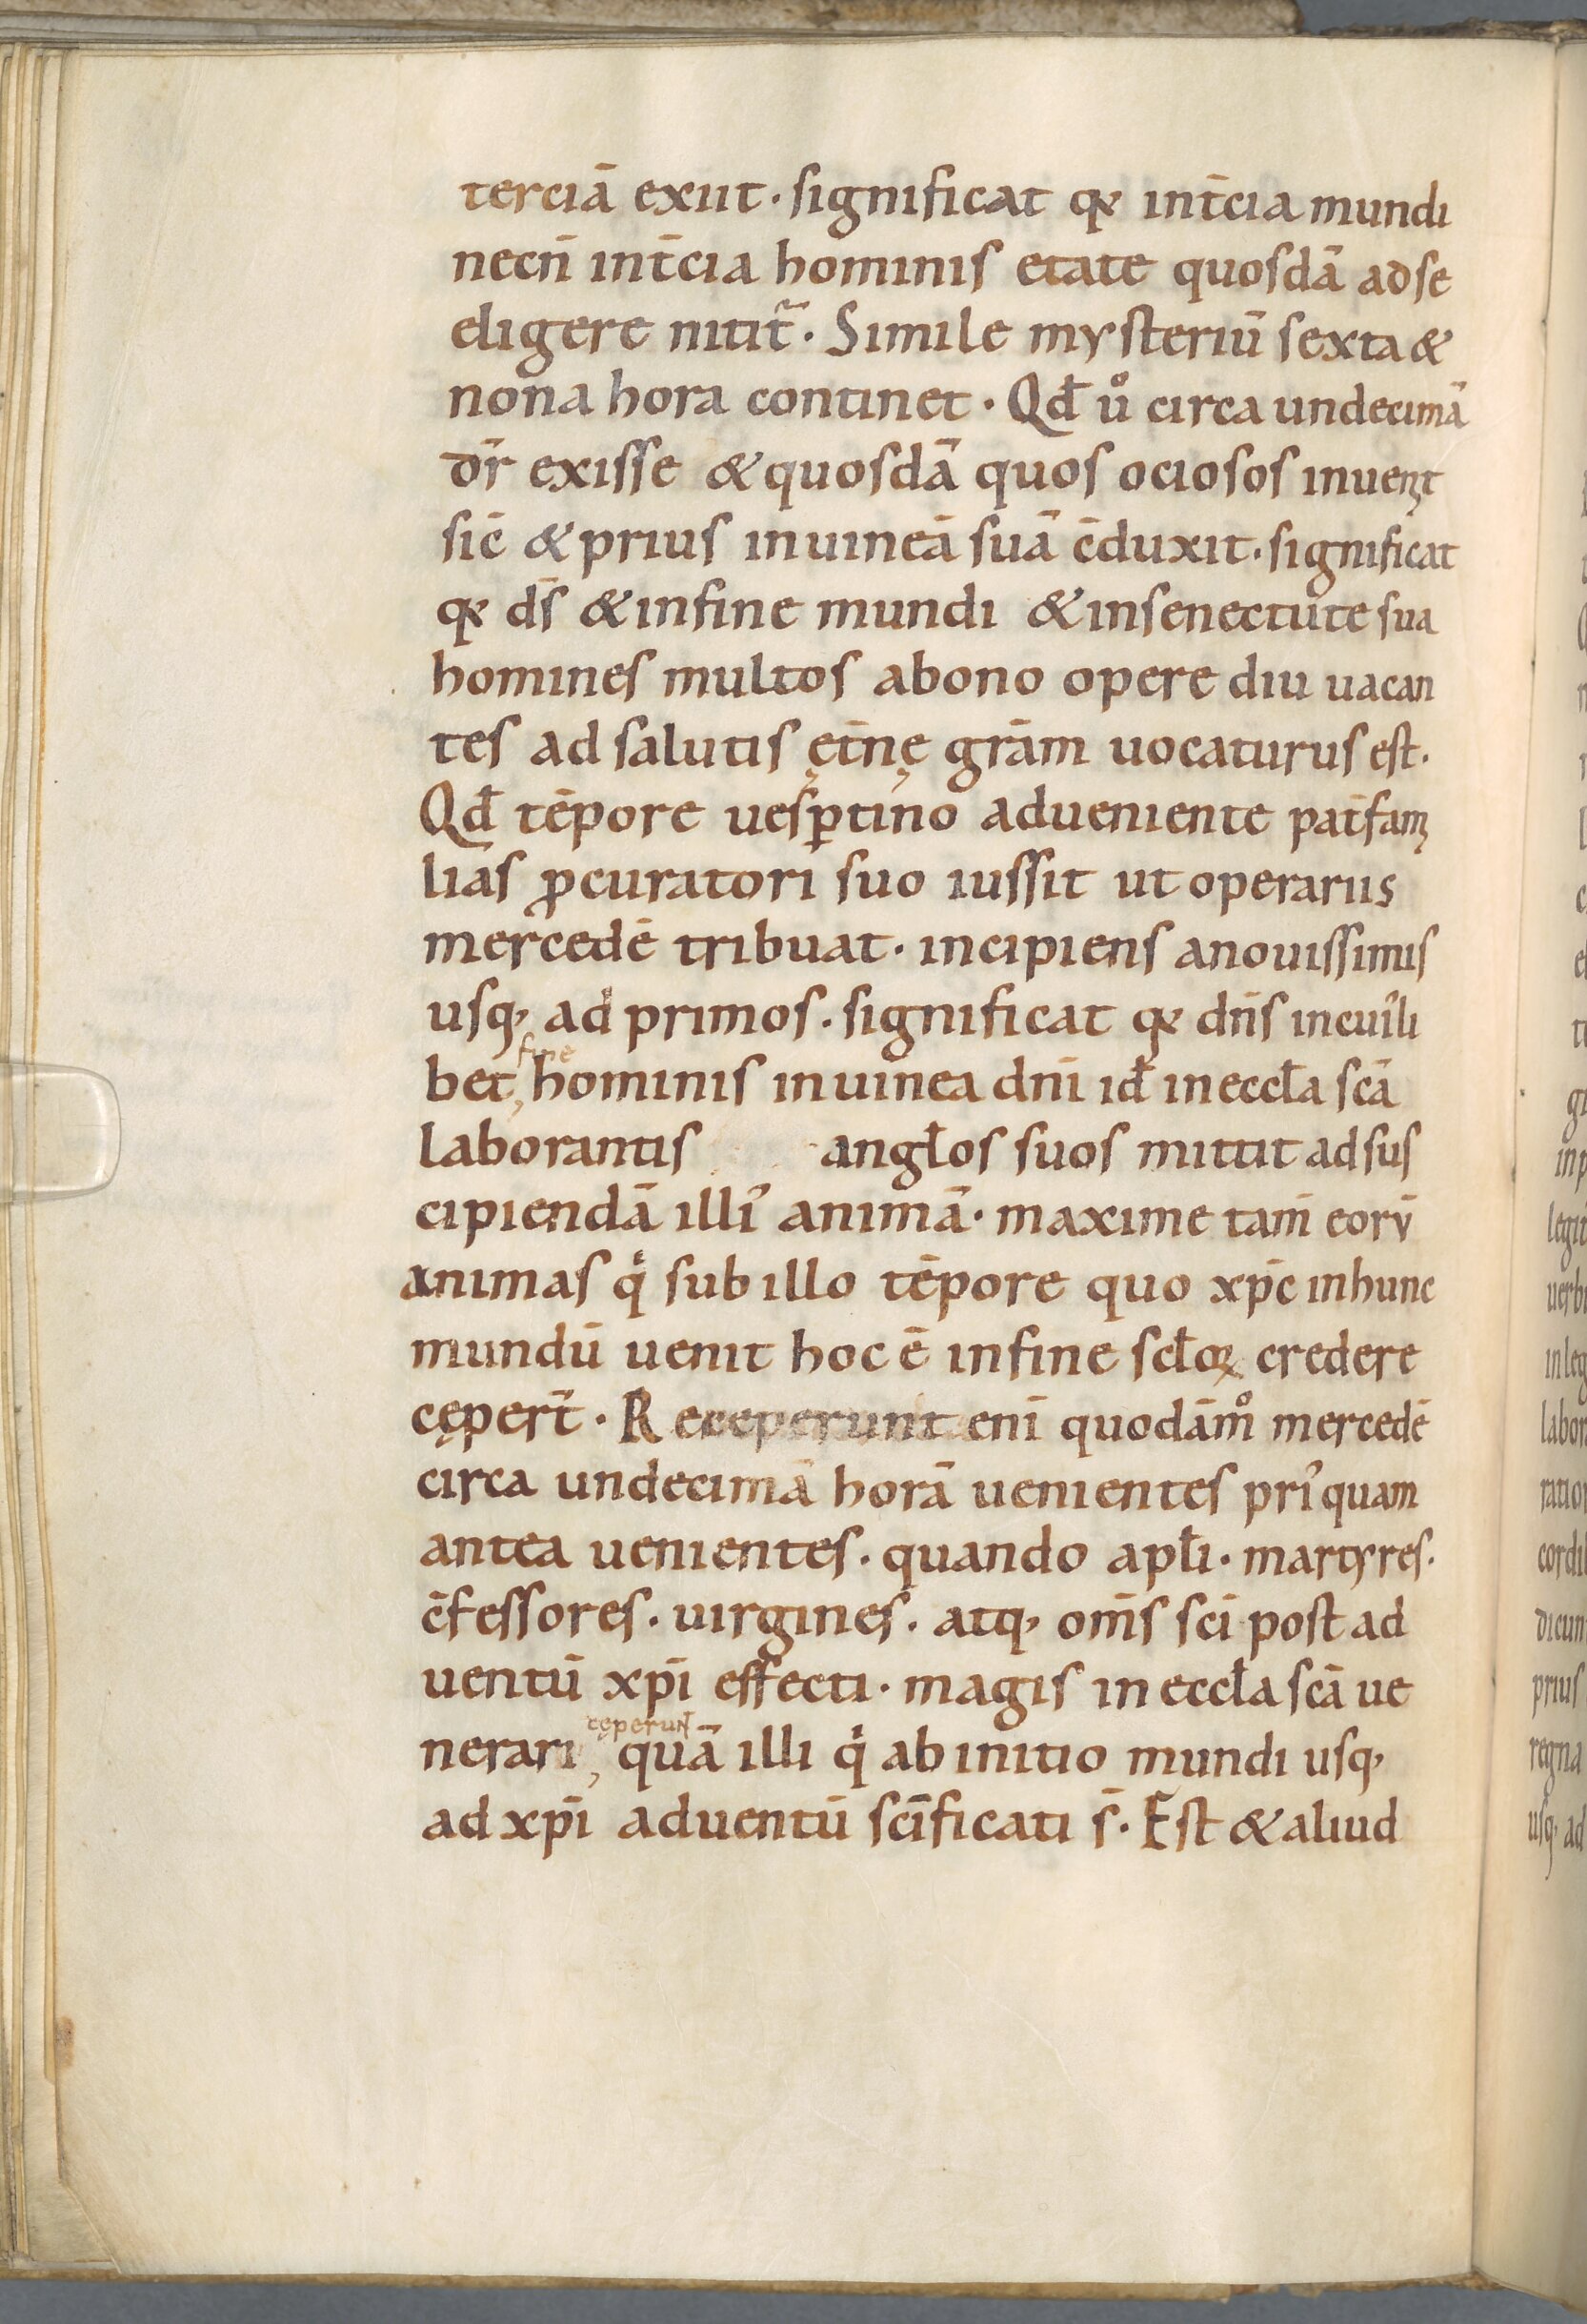 terciā exiit · significat qꝫ int̄cia mundi
necn̄ int̄cia hominis etate quosdā ad se
eligere nitit᷑ · Simile mysteriū sexta &
nona hora continet · Qđ uͦ circa undecimā
dr̄ exisse & quosdā quos ociosos inuenit
sic̄ & prius in uineā suā c̄duxit · significat
qꝫ ds̄ & in fine mundi & in senectute sua
homines multos a bono opere diu uacan
tes ad salutis ęt̄nę grām uocaturus est ·
Qđ tēpore uesꝑtino adueniente pat̄fami
lias ꝓcuratori suo iussit ut operariis
mercedē tribuat · incipiens a nouissimis
usq, ad primos · significat qꝫ dn̄s in cuili
fine
bet, hominis in uinea dn̄i id̄ in eccła scā
laborantis angłos suos mittit ad sus
cipiendā illi᾽ animā · maxime tam̄ eorū
animas qͥ sub illo tēpore quo xp̄c in hunc
mundū uenit hoc ē in fine scłoꝝ credere
cępert̄ · Receperunt eni quodāmͦ mercedē
circa undecimā horā uenientes pri᾽ quam
antea uenientes · quando apłi · martyres ·
c̄fessores · uirgines · atq, om̄s sc̄i post ad
uentū xp̄i effecti · magis in eccła scā ue
cęperunt
nerari, quā illi qͥ ab initio mundi usq,
ad xp̄i aduentū sc̄ificati s̄ · Est & aliud